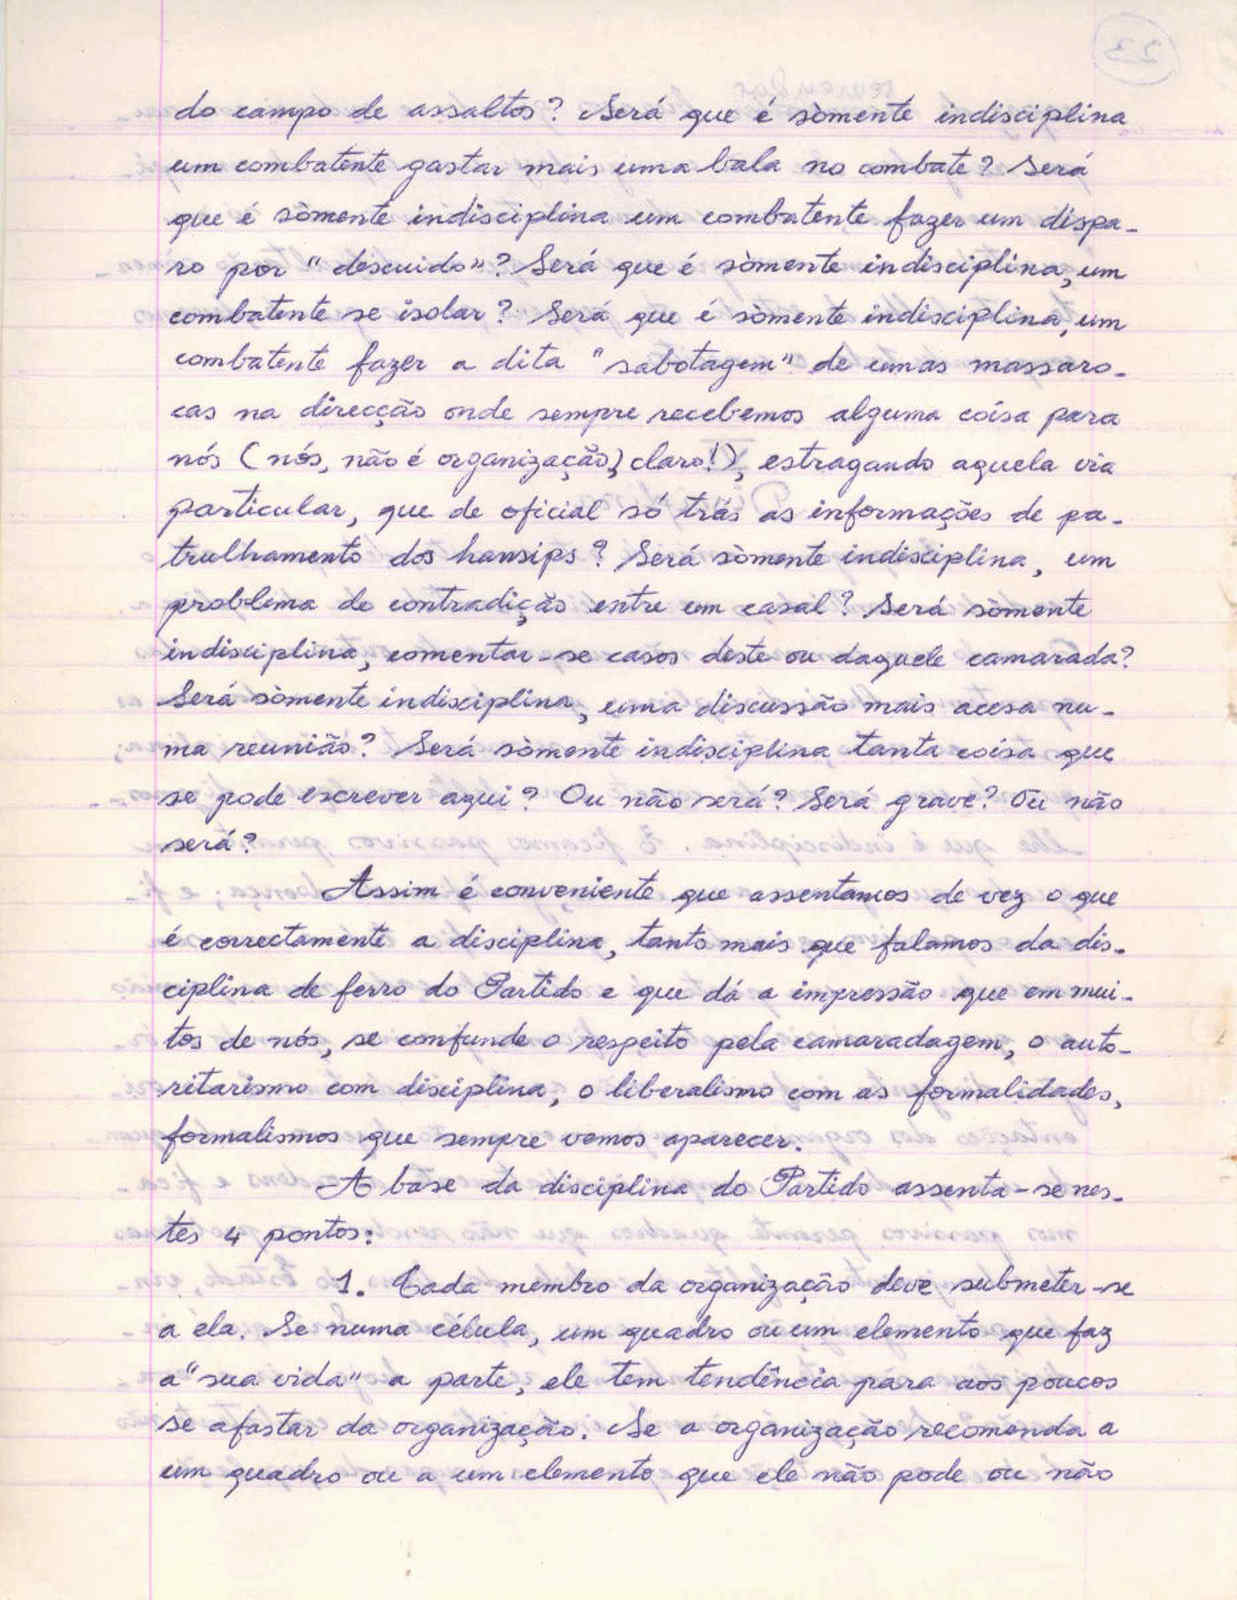 do campo de assaltos? Será que é sòmente indisciplina
um combatente gastar mais uma bala no combate? Será
que é sòmente indisciplina um combatente fazer um dispa-
ro por "descuido"? Será que é sòmente indisciplina, um
combatente se isolar? Será que é sòmente indisciplina, um
combatente fazer a dita "sabotagem" de umas massaro-
cas na direcção onde sempre recebemos alguma coísa para
nós (nós, não é organização, claro!), estragando aquela via
particular, que de oficial só trás as informações de pa-
trulhamento dos hansips? Será sòmente indisciplina, um
problema de contradição entre um casal? Será sòmente
indisciplina, comentar-se casos deste ou daquele camarada?
Será sòmente indisciplina, uma discussão mais acesa nu-
ma reunião? Será sòmente indisciplina, tanta coísa que
se pode escrever aqui? Ou não será? Será grave? Ou não
será?
Assim é conveniente que assentamos de vez o que
é correctamente a disciplina, tanto mais que falamos da dis-
ciplina de ferro do Partido e que dá a impressão que em mui-
tos de nós, se confunde o respeito pela camaradagem, o auto-
ritarismo com disciplina, o liberalismo com as formalidades,
formalismos que sempre vemos aparecer.
A base da disciplina do Partido assenta-se nes-
tes 4 pontos:
1. Cada membro da organização deve submeter-se
a ela. Se numa célula, um quadro ou um elemento que faz
a "sua vida" a parte, ele tem tendência para aos poucos
se afastar da organização. Se a organização recomenda a
um quadro ou a um elemento que ele não pode ou não